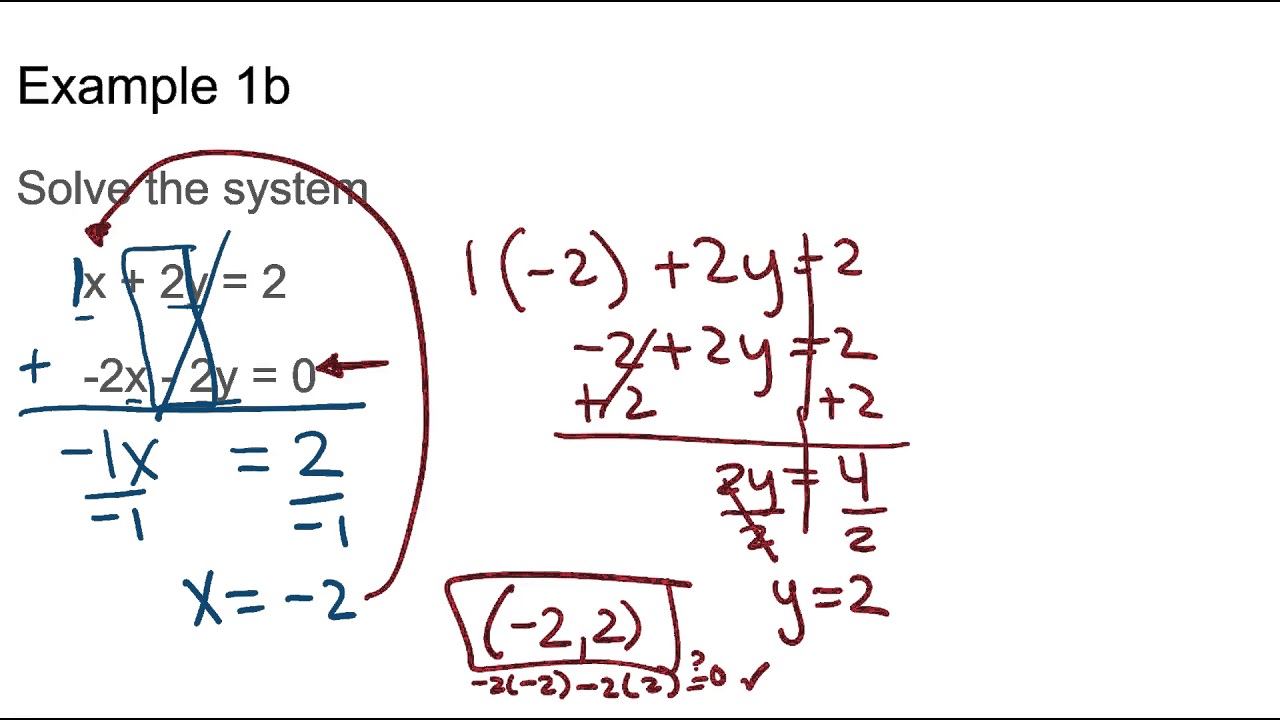 Example 1b
Solve the system
1x + 2y = 2
+ -2x - 2y = 0
-1x = 2
-1 -1
x = -2
1(-2) + 2y = 2
-2 + 2y = 2
+2 +2
2y = 4
2 2
y = 2
(-2, 2)
-2(-2) - 2(2) ?= 0 ✓